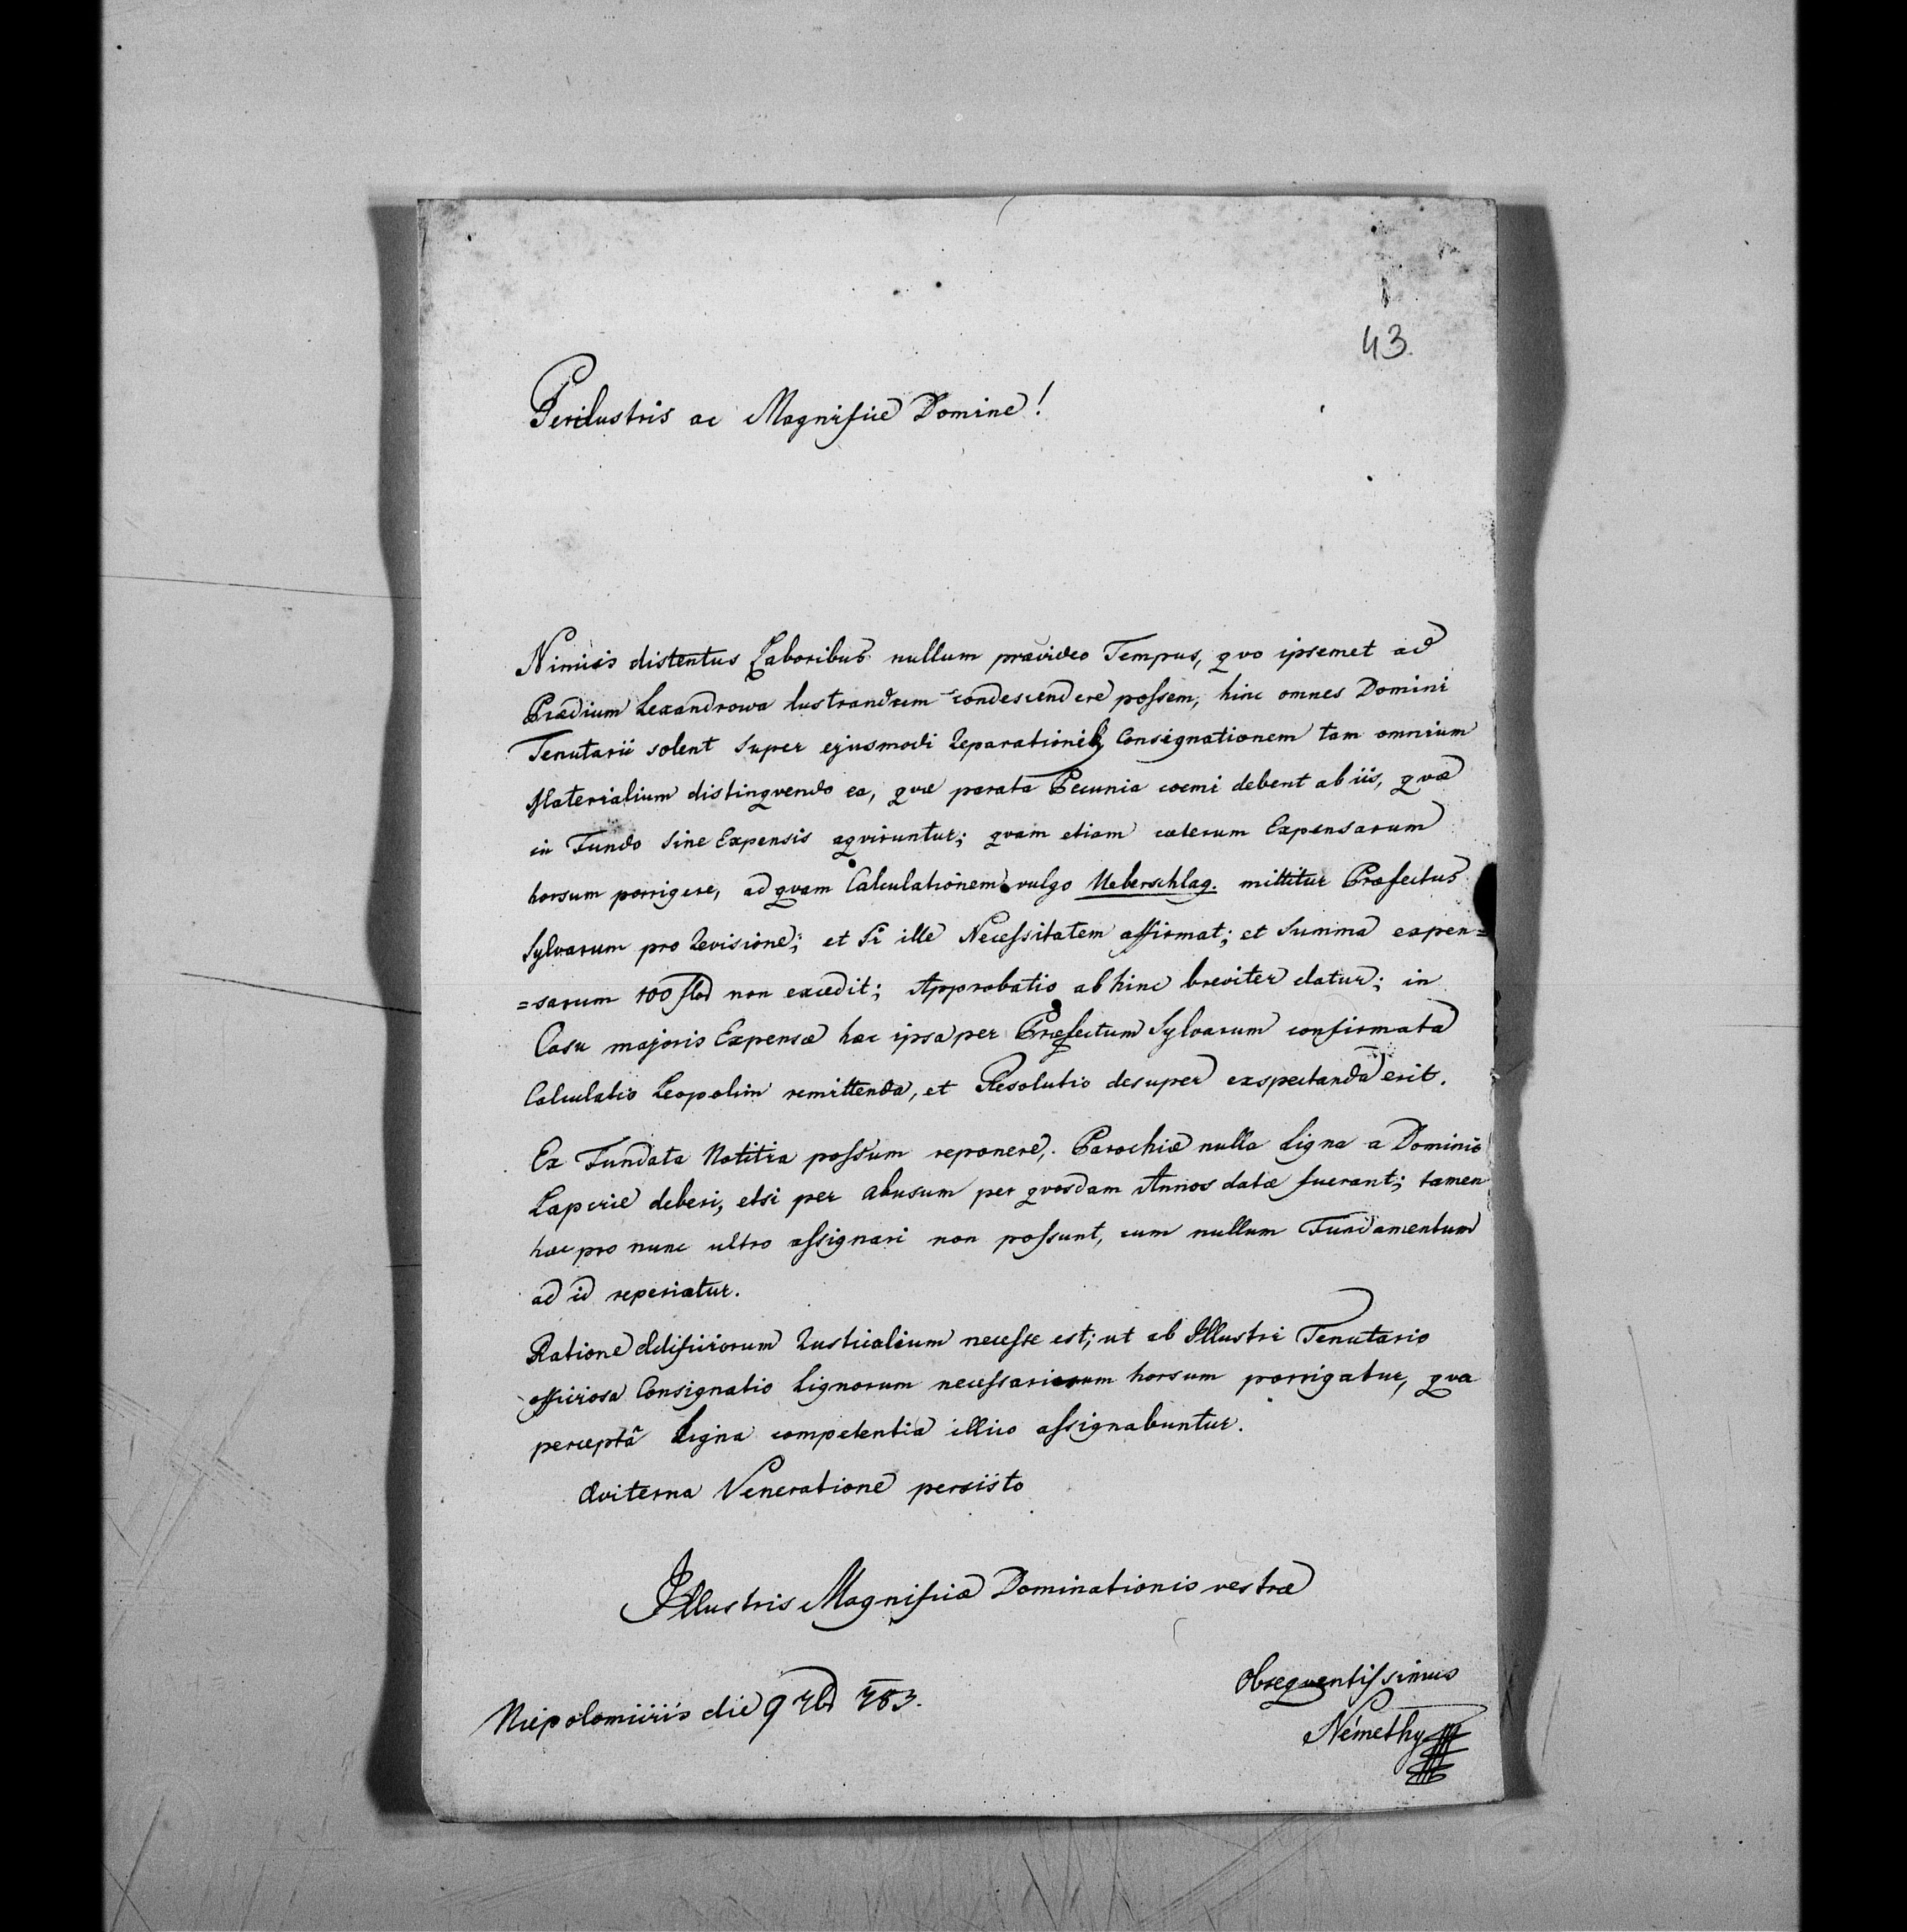 43.
Perilustris ac Magnifice Domine!
Nimiis distentus Laboribus nullum prævideo Tempus, qvo ipsemet ad
Prædium Lexandrowa lustrandum condescendere possem, hinc omnes Domini
Tenutarii solent super ejusmodi Reparationib9 Consignationem tam omnium
Materialium distingvendo ea, qvæ parata Pecunia coemi debent ab iis, qvæ
in Fundo sine Expensis aqviruntur; qvam etiam cæterum Expensarum
horsum porrigere, ad qvam Calculationem vulgo Ueberschlag. mittitur Præfectus
Sylvarum pro Revisione; et si ille Necessitatem affirmat; et Summa expen=
=sarum 100 flod non excedit; Approbatio ab hinc breviter datur; in
Casu majoris Expensæ hæc ipsa per Præfectum Sylvarum confirmata
Calculatio Leopolim remittenda, et Resolutio desuper exspectanda erit.
Ex Fundata Notitia possum reponere, Parochiæ nulla Ligna a Dominio
deberi, etsi per abusum per qvosdam Annos datæ fuerant; tamen
hæc pro nunc ultro assignari non possunt, cum nullum Fundamentum
ad id reperiatur.
Ratione Ædificiorum Rusticalium necesse est; ut ab Illustri Tenutario
officiosa Consignatio Lignorum necessariorum horsum porrigatur, qva
perceptâ Ligna competentia illico assignabuntur.
Æviterna Veneratione persisto
Illustris Magnificæ Dominationis vestræ
Niepolomiciis die 9 7br 783.
Obseqventissimus
Némethy